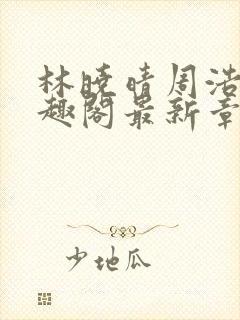 林晓晴周浩
趣阁最新章
少地瓜